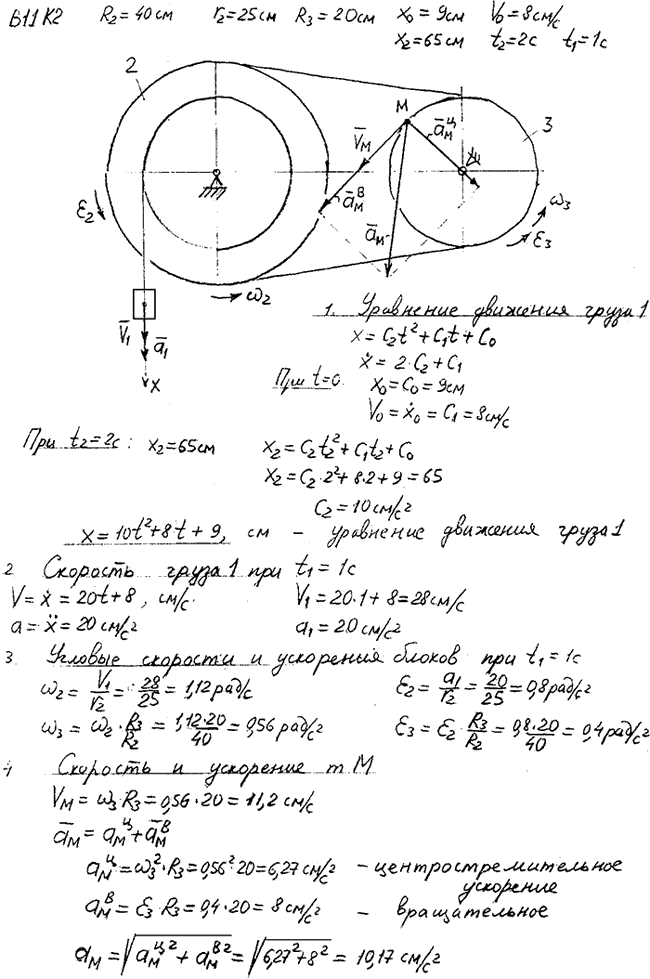 В11 К2 R2=40см r2=25см R3=20см x0=9см V0=8см/с
x2=65см t2=2с t1=1с
2
3
M
a̅Mц
V̅M
a̅Mв
a̅M
ε2
ω3
ε3
ω2
V̅1
a̅1
x
1. Уравнение движения груза 1
x=C2t²+C1t+C0
ẋ=2·C2+C1
При t=0 x0=C0=9см
V0=ẋ0=C1=8см/с
При t2=2с: x2=65см x2=C2t2²+C1t2+C0
x2=C2·2²+8·2+9=65
C2=10см/с²
x=10t²+8t+9, см – уравнение движения груза 1
2 Скорость груза 1 при t1=1с
V=ẋ=20t+8, см/с. V1=20·1+8=28см/с
a=ẍ=20см/с² a1=20см/с²
3. Угловые скорости и ускорения блоков при t1=1с
ω2=V1/r2=28/25=1,12рад/с ε2=a1/r2=20/25=0,8рад/с²
ω3=ω2·R3/R2=1,12·20/40=0,56рад/с² ε3=ε2·R3/R2=0,8·20/40=0,4рад/с²
Скорость и ускорение т М
VM=ω3·R3=0,56·20=11,2см/с
a̅M=a̅Mц+a̅Mв
aMц=ω3²·R3=0,56²·20=6,27см/с² – центростремительное
ускорение
aMв=ε3·R3=0,4·20=8см/с² – вращательное
aM=√(aMц²+aMв²)=√(6,27²+8²)=10,17см/с²